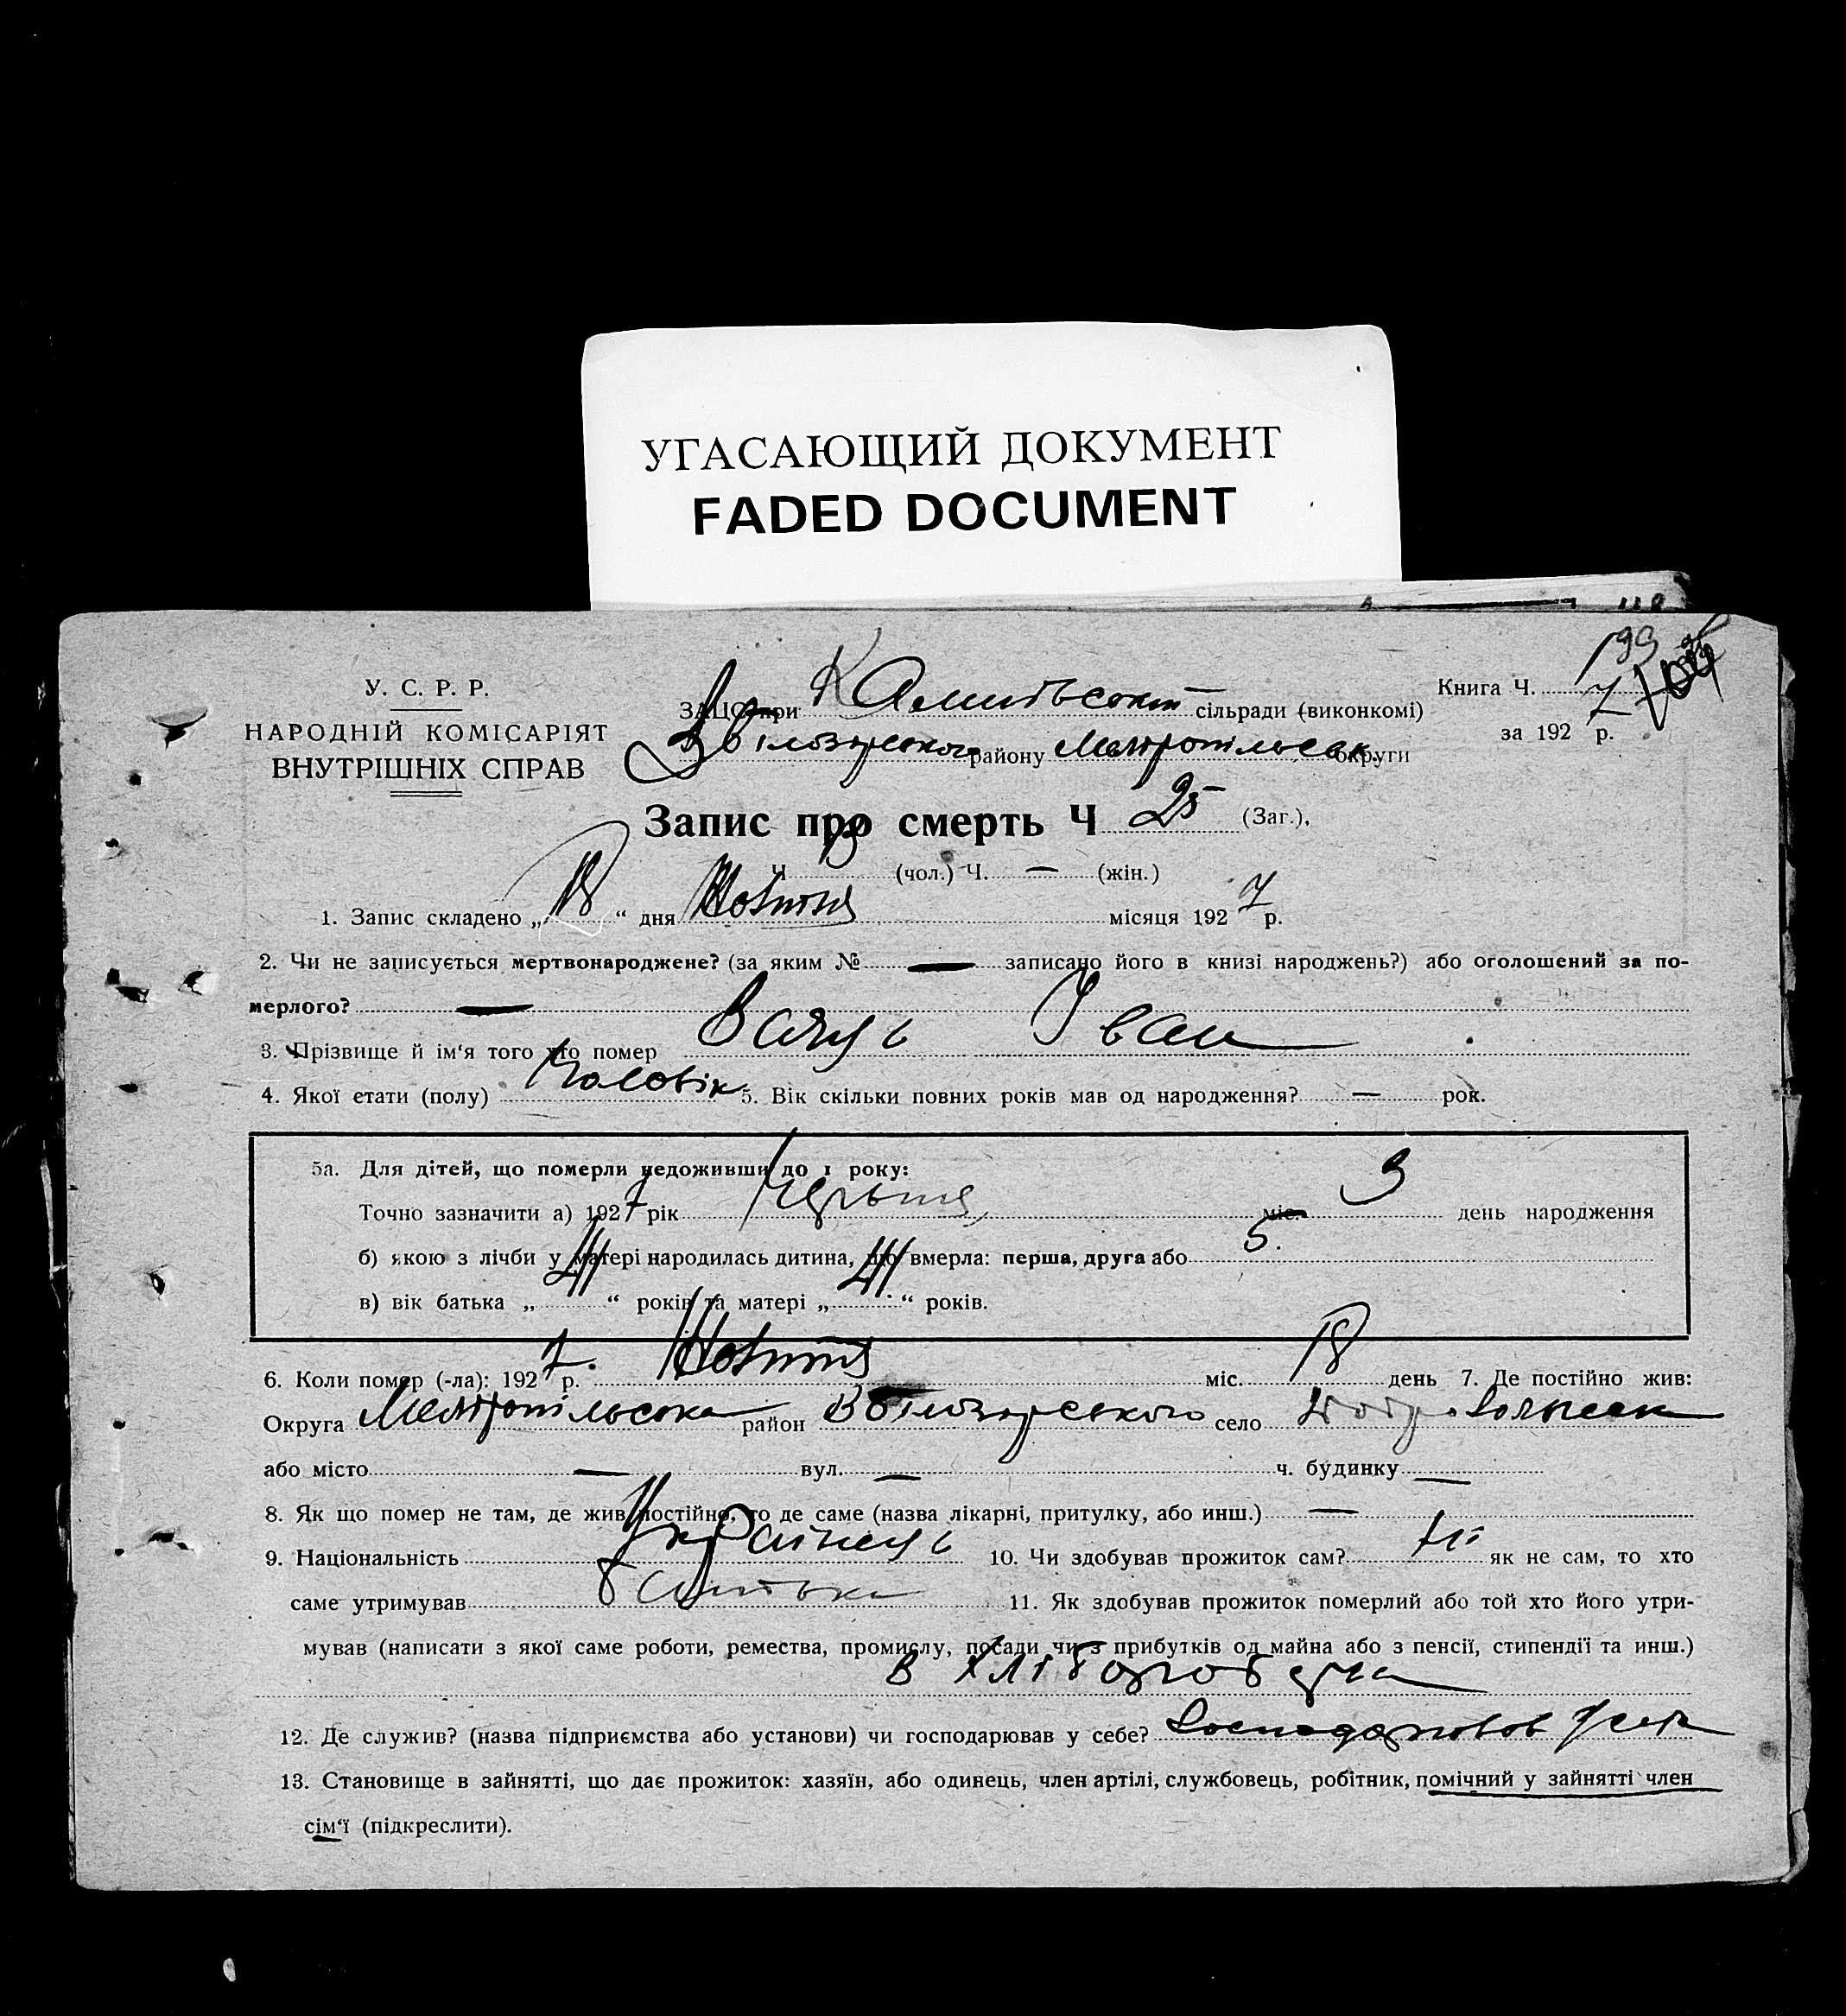 УГАСАЮЩИЙ ДОКУМЕНТ
FADED DOCUMENT
199
У. С. Р. Р.
НАРОДНІЙ КОМІСАРІЯТ
ВНУТРІШНІХ СПРАВ
ЗАЦС при сільради (виконкомі)
району Мелітопільськ. округи
Книга Ч.
за 1927 р.
Запис про смерть Ч 25 (Заг.),
Ч 13 (чол.) Ч. — (жін.)
1. Запис складено „18“ дня Жовтня місяця 1927 р.
2. Чи не записується мертвонароджене? (за яким № — записано його в книзі народжень?) або оголошений за по-
мерлого? —
3. Прізвище й ім'я того хто помер Іван
4. Якої етати (полу) Чоловік 5. Вік скільки повних років мав од народження? — рок.
5а. Для дітей, що померли недоживши до 1 року:
Точно зазначити а) 1927 рік міс. 3 день народження
б) якою з лічби у матері народилась дитина, що вмерла: перша, друга або 5.
в) вік батька „41“ років та матері „41“ років.
6. Коли помер (-ла): 1927 р. Жовтня міс. 18 день 7. Де постійно жив:
Округа Мелітопільська район село
або місто — вул. — ч. будинку —
8. Як що помер не там, де жив постійно, то де саме (назва лікарні, притулку, або инш.) —
9. Національність Українець 10. Чи здобував прожиток сам? Ні як не сам, то хто
саме утримував батько 11. Як здобував прожиток померлий або той хто його утри-
мував (написати з якої саме роботи, ремества, промислу, посади чи з прибутків од майна або з пенсії, стипендії та инш.)
в хліборобства
12. Де служив? (назва підприємства або установи) чи господарював у себе?
13. Становище в зайнятті, що дає прожиток: хазяїн, або одинець, член артілі, службовець, робітник, помічний у зайнятті член
сім'ї (підкреслити).